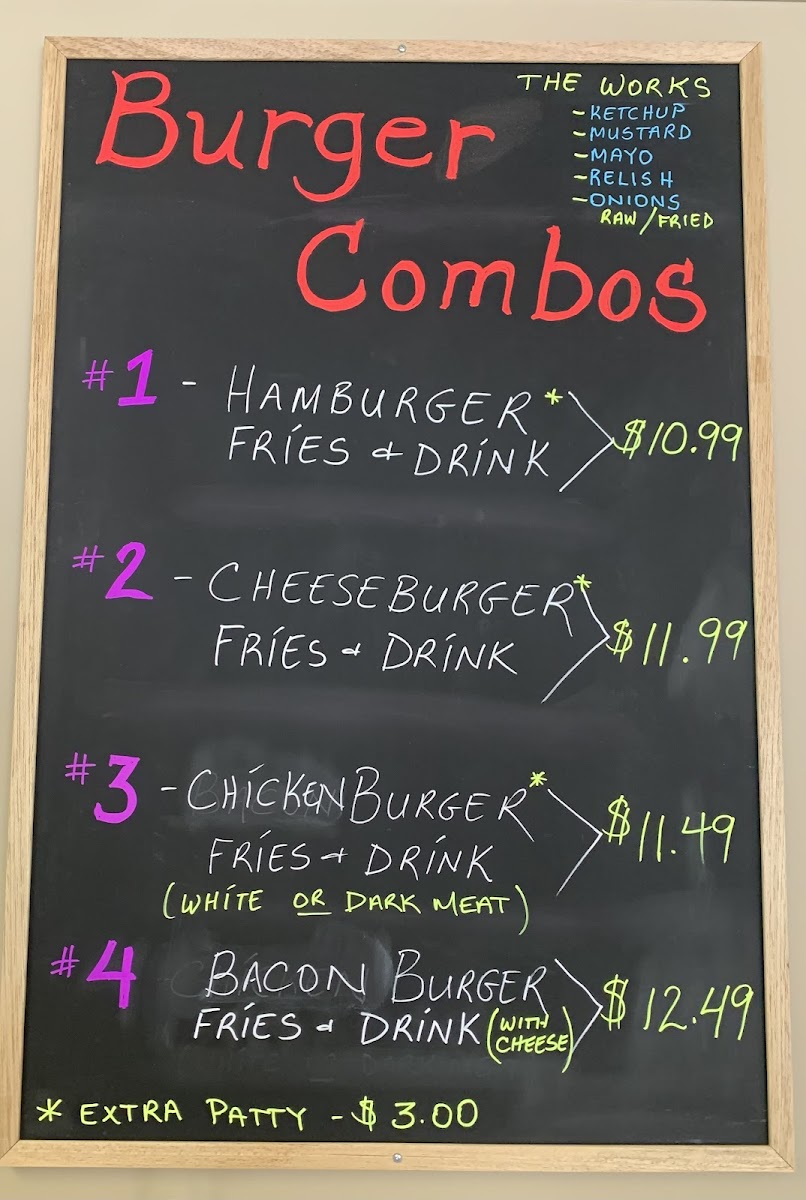 Burger
Combos
THE WORKS
- KETCHUP
- MUSTARD
- MAYO
- RELISH
- ONIONS
RAW/FRIED
#1 - HAMBURGER*
FRIES & DRINK
$10.99
#2 - CHEESEBURGER*
FRIES & DRINK
$11.99
#3 - CHICKEN BURGER*
FRIES & DRINK
(WHITE OR DARK MEAT)
$11.49
#4 BACON BURGER
FRIES & DRINK (WITH CHEESE)
$12.49
* EXTRA PATTY - $3.00